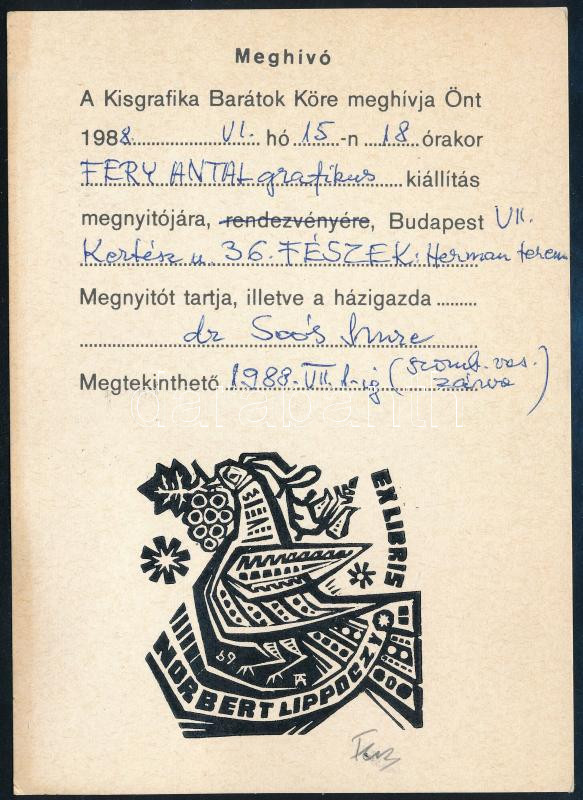 Meghívó
A Kisgrafika Barátok Köre meghívja Önt
1988. VI. hó 15-n 18 órakor
FERY ANTAL grafikus kiállítás
megnyitójára, rendezvényére, Budapest VII.
Kertész u. 36. FÉSZEK: Herman terem
Megnyitót tartja, illetve a házigazda
dr Soós Imre
Megtekinthető 1988. VII. 1-ig (szomb. vas. zárva)
EX LIBRIS
NORBERT LIPPÓCZY
69
darabanth